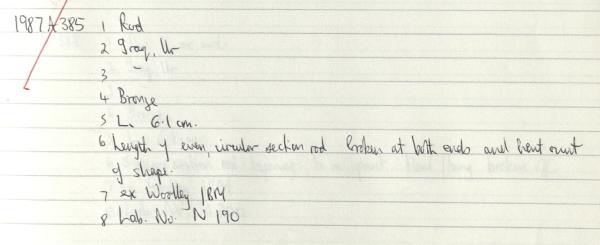 1987 A 385 1 Rod
2 Iraq, Ur
3 -
4 Bronze
5 L. 6.1 cm.
6 Length of even, circular section rod broken at both ends and bent out
of shape.
7 ex Woolley /BM
8 Lab. No. N 190